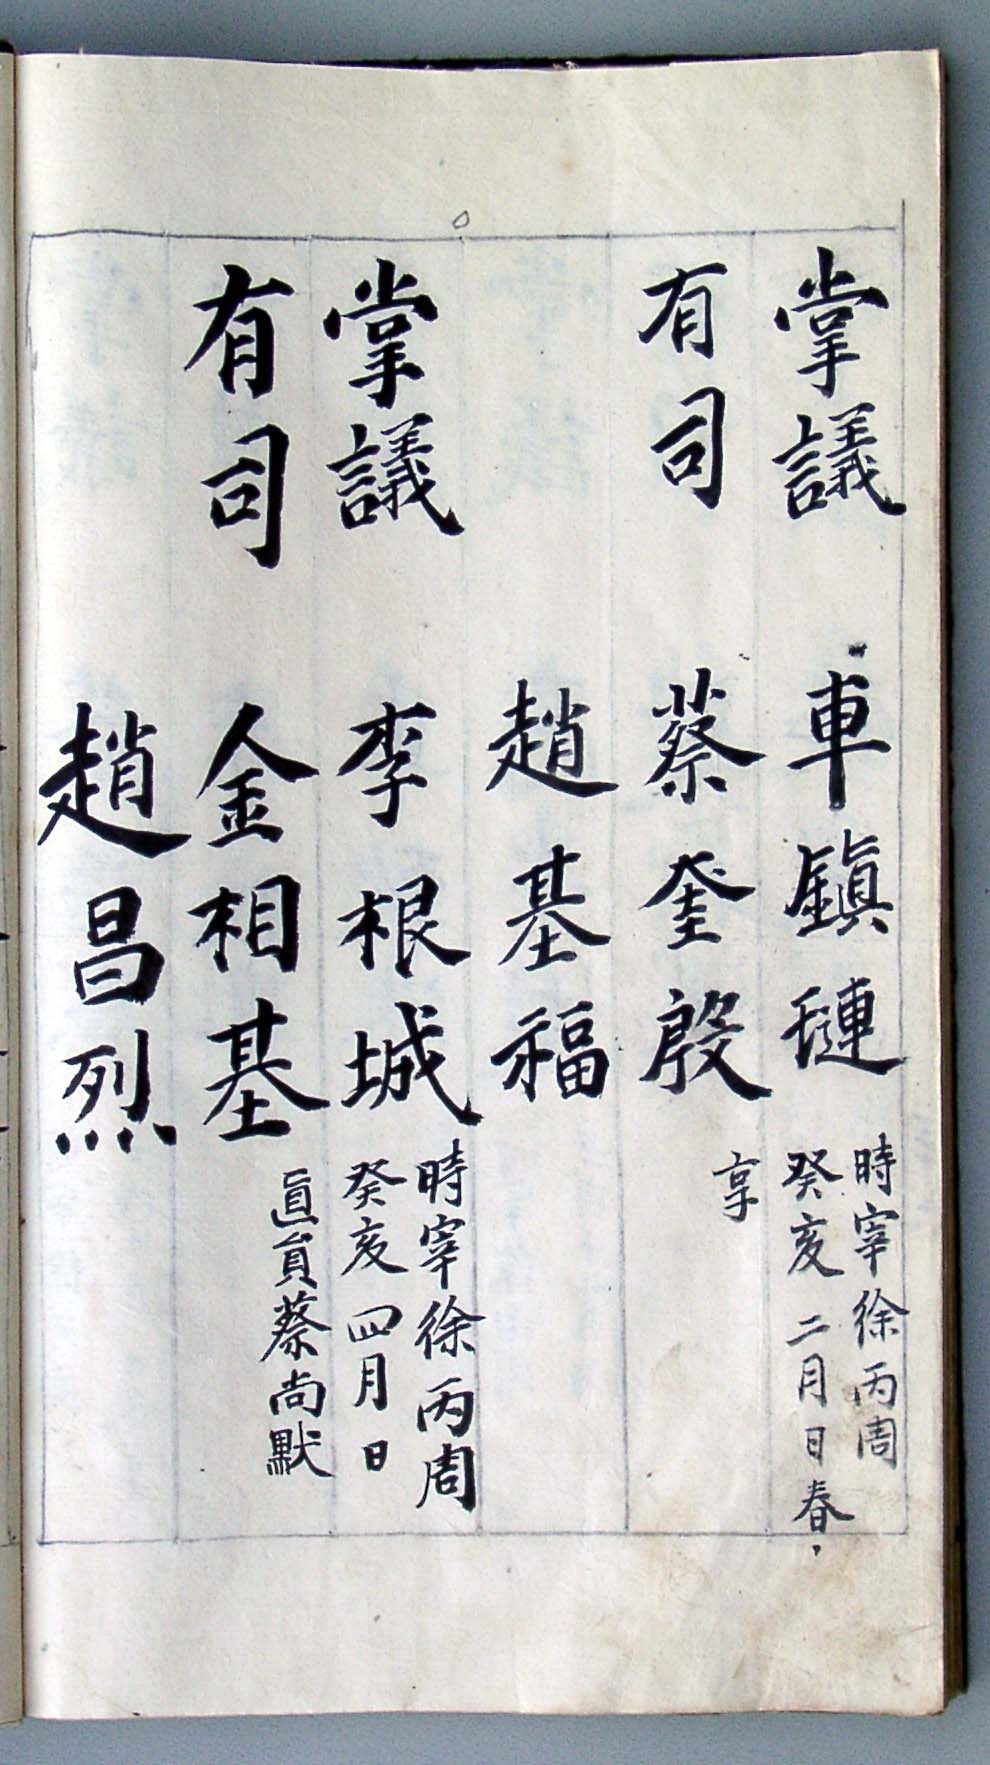 掌議 車鎭璉
時宰徐丙周
癸亥二月日春
享
有司 蔡奎殷
趙基福
掌議 李根城
時宰徐丙周
癸亥四月日
直員蔡尚默
有司 金相基
趙昌烈